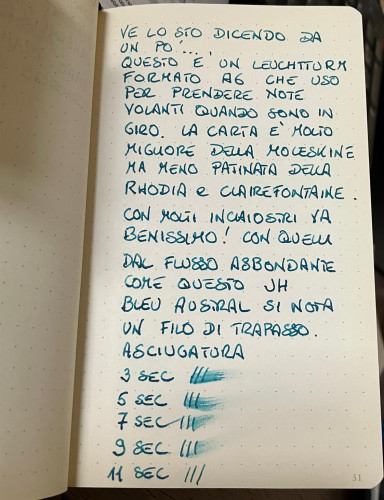 VE LO STO DICENDO DA
UN PO'...
QUESTO È UN LEUCHTTURM
FORMATO A6 CHE USO
PER PRENDERE NOTE
VOLANTI QUANDO SONO IN
GIRO. LA CARTA E' MOLTO
MIGLIORE DELLA MOLESKINE
MA MENO PATINATA DELLA
RHODIA e CLAIREFONTAINE.
CON MOLTI INCHIOSTRI VA
BENISSIMO! CON QUELLI
DAL FLUSSO ABBONDANTE
COME QUESTO JH
BLEU AUSTRAL SI NOTA
UN FILO DI TRAPASSO.
ASCIUGATURA
3 SEC ///
5 SEC ///
7 SEC ///
9 SEC ///
11 SEC ///
51